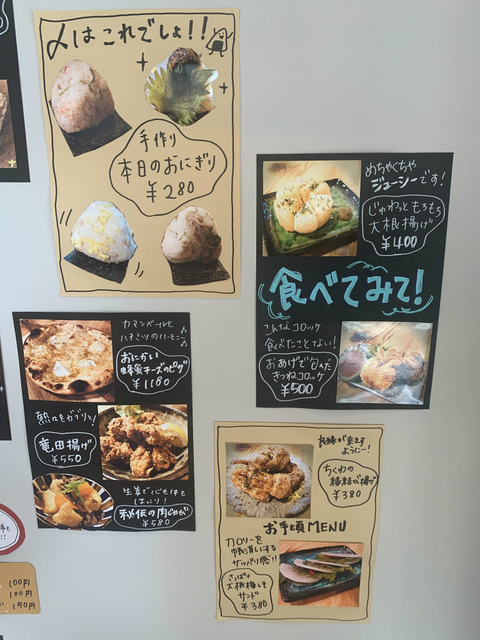 〆はこれでしょ!!
手作り
本日のおにぎり
¥280
めちゃくちゃ
ジューシーです!
じゅわっともちもち
大根揚げ
¥400
食べてみて!
こんなコロッケ
食べたことない!
おあげで包んだ
きつねコロッケ
¥500
カマンベールと
ハチミツのハーモニー♪
おにかい
蜂蜜チーズのピザ
¥1180
熱々をガブリと!
竜田揚げ
¥550
生姜で心も体も
ほっこり!
秘伝の肉じゃが
¥580
良縁が来ます
ように…!
ちくわの
縁結び揚げ
¥380
お手頃MENU
カロリーを
帳消しにする
サッパリ感!!
さっぱり
大根梅しそ
サンド
¥380
100円
100円
150円